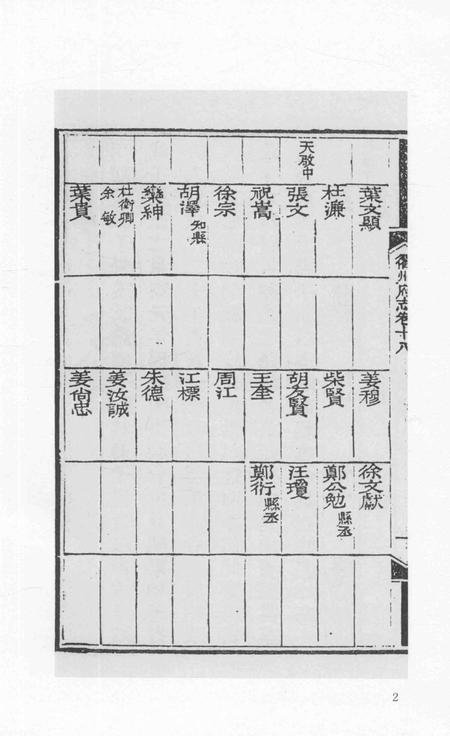 衢州府志卷十八
葉文顯
杜濂
天啟中
張文
祝嵩
徐宗
胡澤知縣
欒紳
杜衛卿
余敏
葉貴
姜穆
柴賢
胡友賢
王奎
周江
江標
朱德
姜汝誠
姜尚忠
徐文獻
鄭公勉縣丞
汪瓊
鄭衍縣丞
2